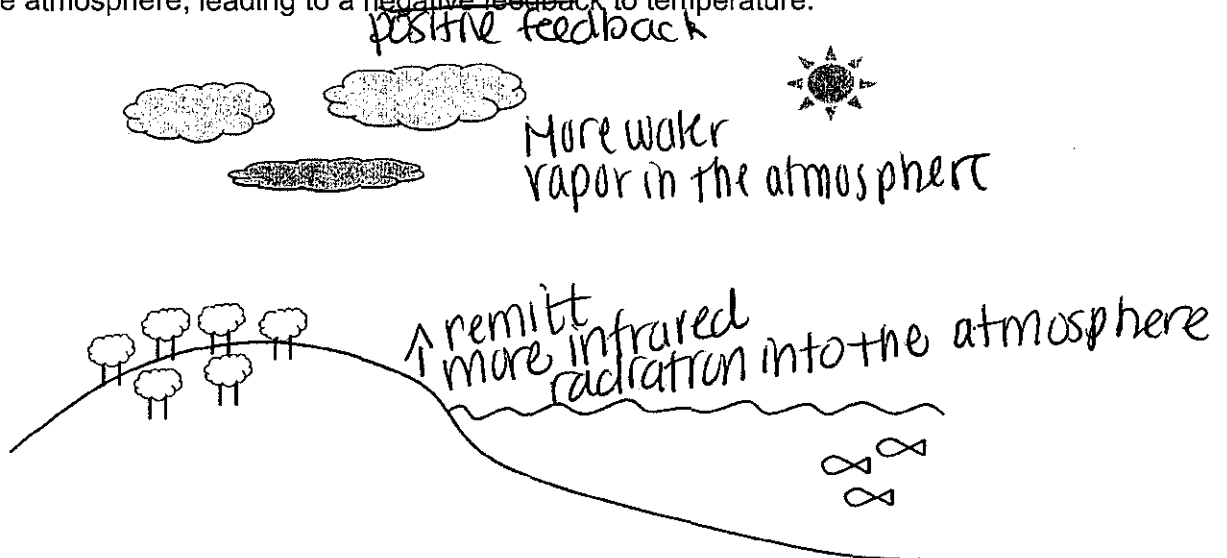 e atmosphere, leading to a negative feedback to temperature.
positive feedback
More water
vapor in the atmosphere
↑ remitt
more infrared
radiation into the atmosphere